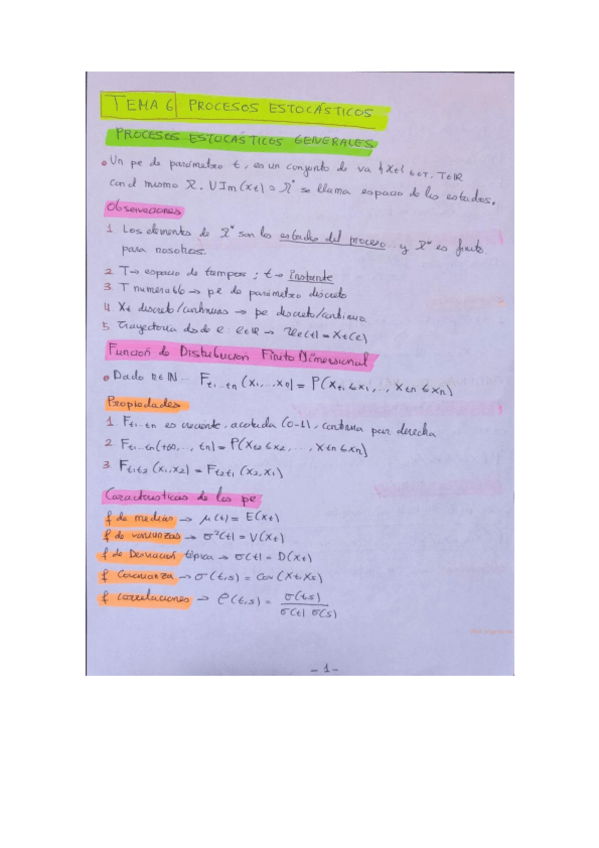 TEMA 6 PROCESOS ESTOCÁSTICOS
PROCESOS ESTOCÁSTICOS GENERALES
• Un pe de parámetro t, es un conjunto de va {Xt} t∈T, T∈ℝ
con el mismo Ω. U Im(xt) = Ω* se llama espacio de los estados.
Observaciones
1. Los elementos de Ω* son los estados del proceso y Ω* es finito
para nosotros.
2. T → espacio de tiempos ; t → Instante
3 T numerable → pe de parámetro discreto
4. Xt discreto/continuo → pe discreto/continuo
5. Trayectoria dada e: e∈Ω → (t) = Xt(e)
Función de Distribución Finito Dimensional
• Dado n∈ℕ... Ft1...tn (x1,...xn) = P(Xt1≤x1,.., Xtn≤xn)
Propiedades
1. Ft1...tn es creciente, acotada (0-1), continua por derecha
2. Ft1...tn(+∞,..., tn) = P(Xt2≤x2,..., Xtn≤xn)
3. Ft1t2 (x1,x2) = Ft2t1 (x2,x1)
Características de los pe
f de medias → μ(t) = E(Xt)
f de varianzas → σ²(t) = V(Xt)
f de Desviación típica → σ(t) = D(Xt)
f Covarianza → σ(t,s) = Cov(Xt,Xs)
f correlaciones → ρ(t,s) = σ(t,s) / σ(t) σ(s)
- 1 -